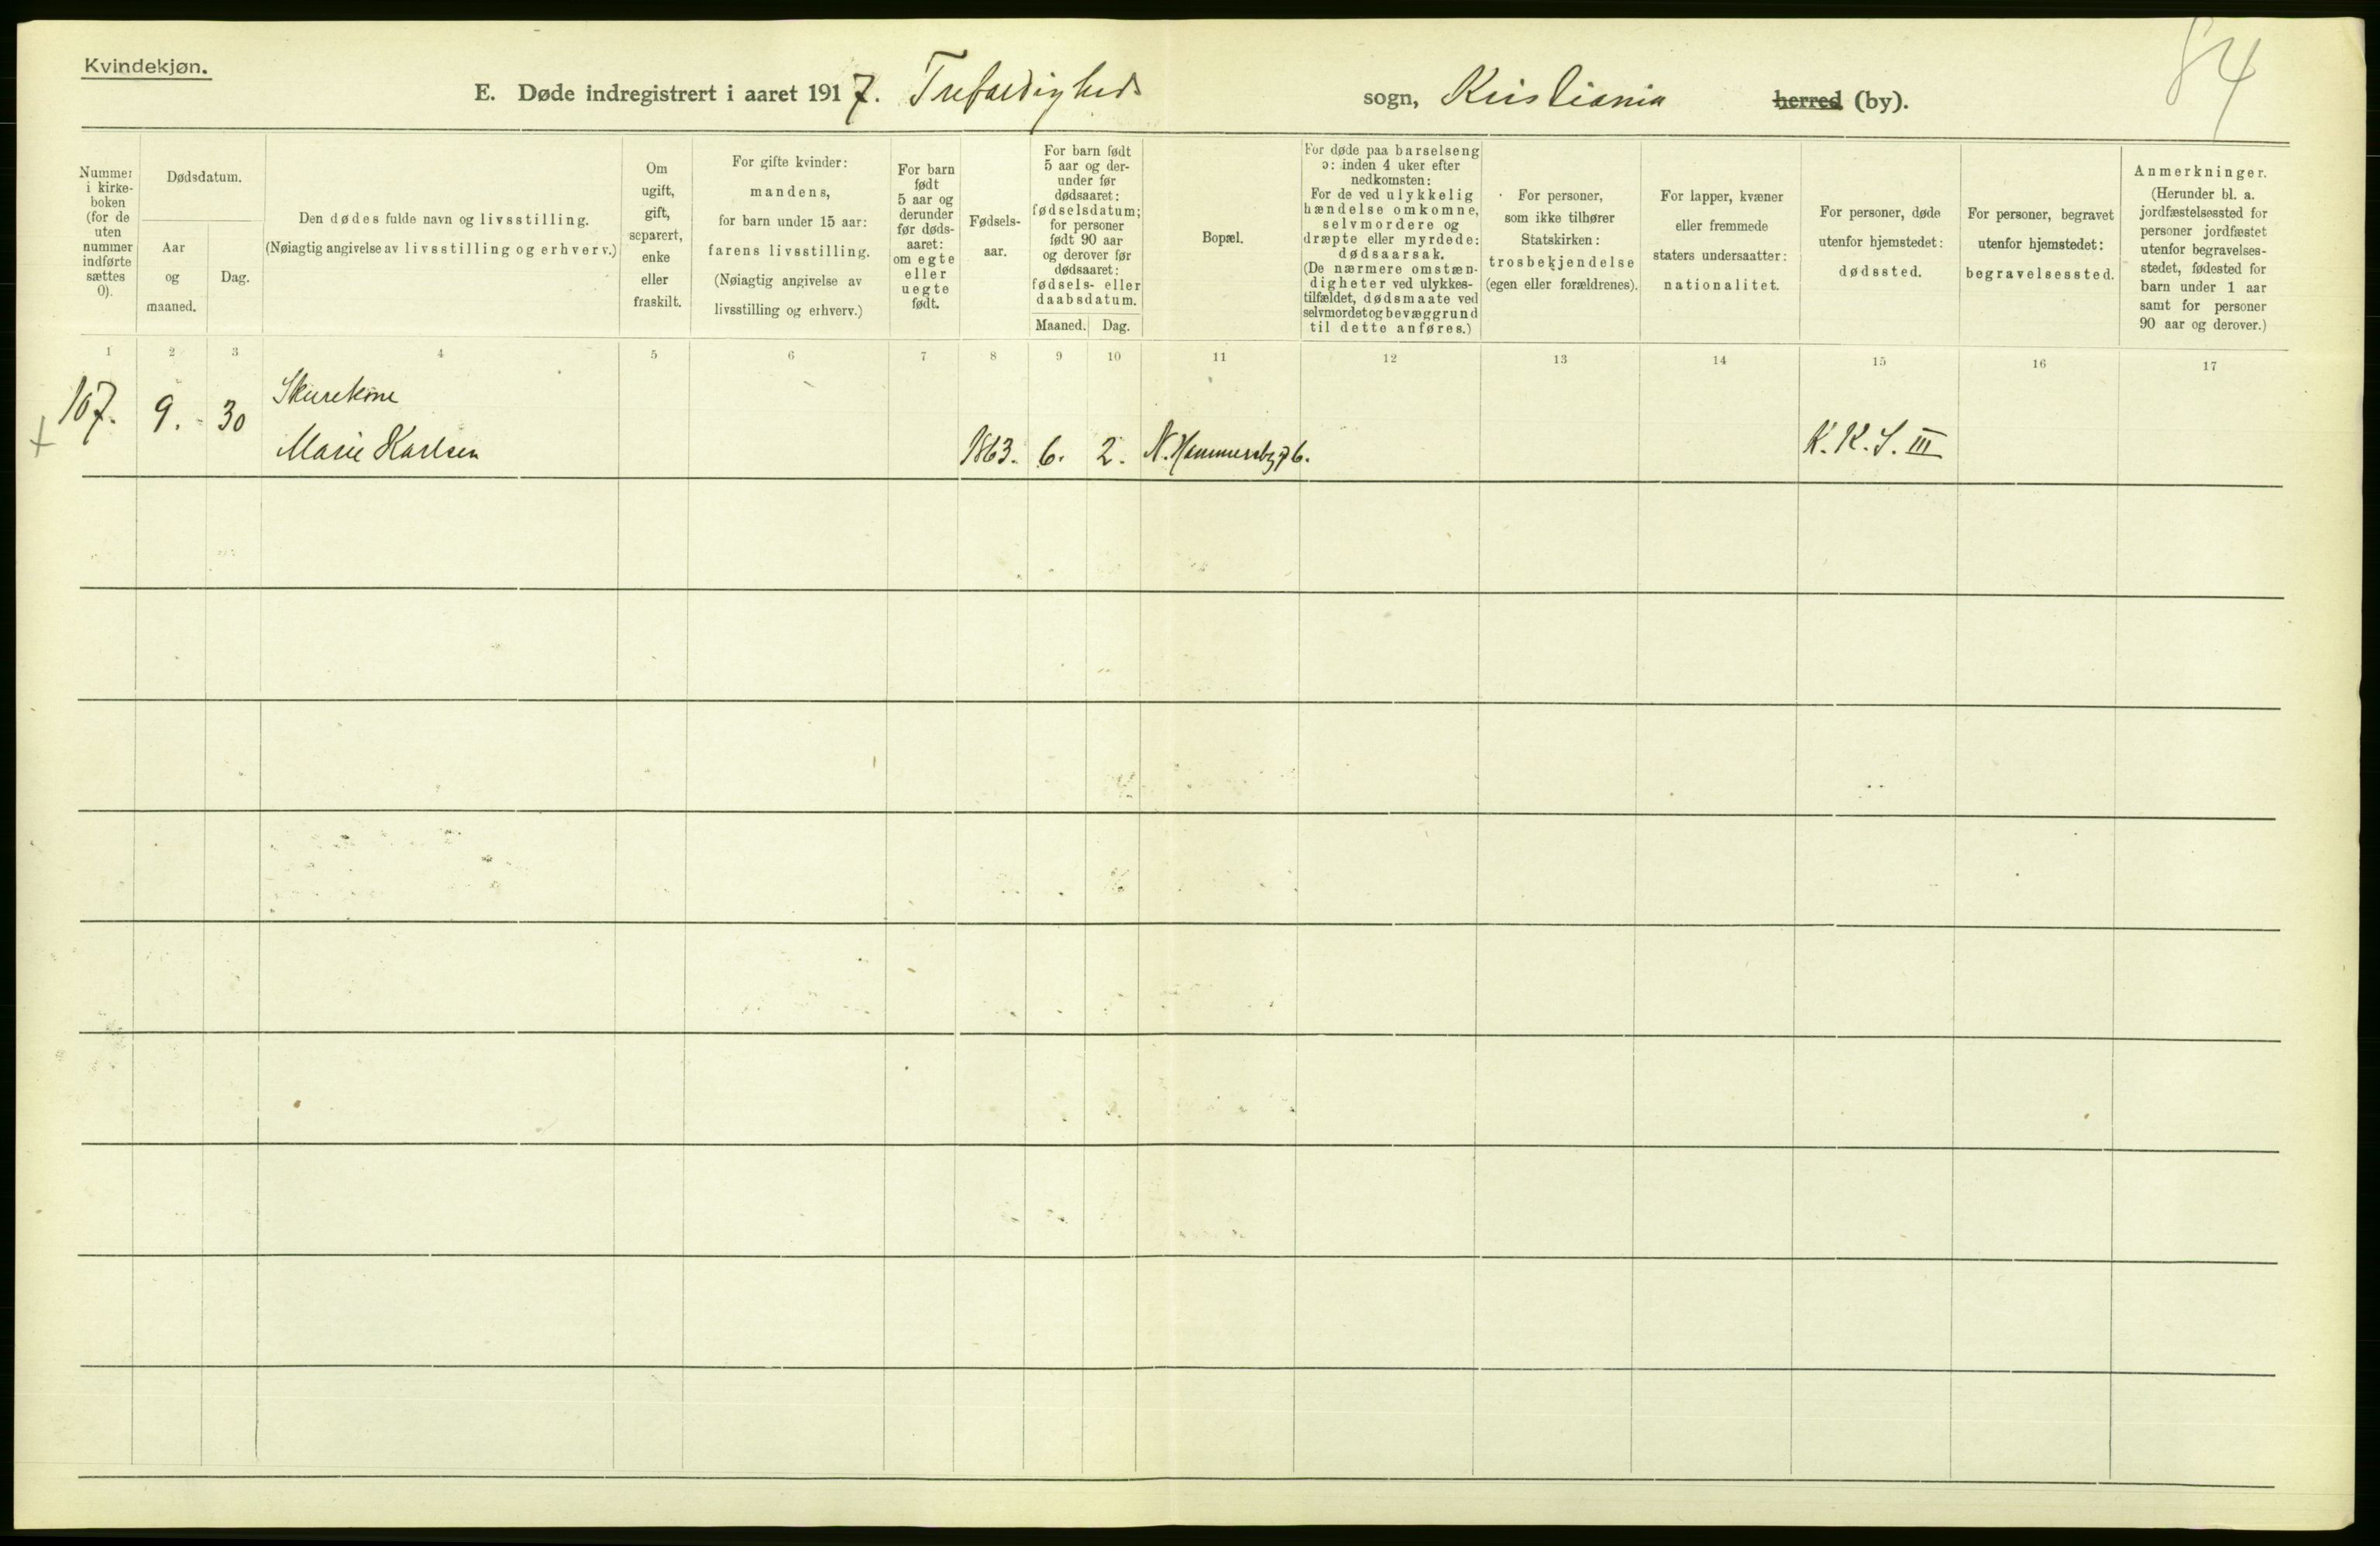 84
Kvindekjøn.
E. Døde indregistrert i aaret 1917. Trefoldigheds sogn, Kristiania herred (by).
Nummer
i kirke-
boken
(for de
uten
nummer
indførte
sættes
0).
Dødsdatum.
Aar
og
maaned.
Dag.
Den dødes fulde navn og livsstilling.
(Nøiagtig angivelse av livsstilling og erhverv.)
Om
ugift,
gift,
separert,
enke
eller
fraskilt.
For gifte kvinder:
mandens,
for barn under 15 aar:
farens livsstilling.
(Nøiagtig angivelse av
livsstilling og erhverv.)
For barn
født
5 aar og
derunder
før døds-
aaret:
om egte
eller
uegte
født.
Fødsels-
aar.
For barn født
5 aar og der-
under før
dødsaaret:
fødselsdatum;
for personer
født 90 aar
og derover før
dødsaaret:
fødsels- eller
daabsdatum.
Maaned. Dag.
Bopæl.
For døde paa barselseng
ɔ: inden 4 uker efter
nedkomsten:
For de ved ulykkelig
hændelse omkomne,
selvmordere og
dræpte eller myrdede:
dødsaarsak.
(De nærmere omstæn-
digheter ved ulykkes-
tilfældet, dødsmaate ved
selvmordet og bevæggrund
til dette anføres.)
For personer,
som ikke tilhører
Statskirken:
trosbekjendelse
(egen eller forældrenes).
For lapper, kvæner
eller fremmede
staters undersaatter:
nationalitet.
For personer, døde
utenfor hjemstedet:
dødssted.
For personer, begravet
utenfor hjemstedet:
begravelsessted.
Anmerkninger.
(Herunder bl. a.
jordfæstelsessted for
personer jordfæstet
utenfor begravelses-
stedet, fødested for
barn under 1 aar
samt for personer
90 aar og derover.)
1 2 3 4 5 6 7 8 9 10 11 12 13 14 15 16 17
Skurekone
107. 9. 30 Marie Karlsen 1863. 6. 2. K. K. S. III